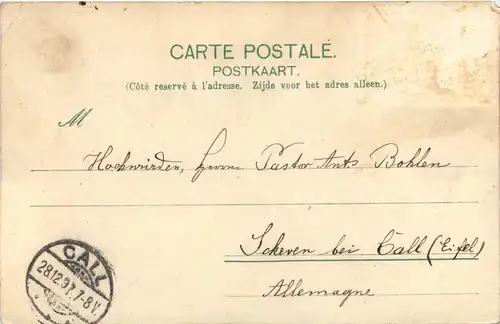 CARTE POSTALE.
POSTKAART.
(Côté reservé à l'adresse. Zijde voor het adres alleen.)
M
Hochwürden, Herrn Pastor Ants Bohlen
Scheven bei Call (Eifel)
Allemagne
CALL
28/12.97.7-8V.